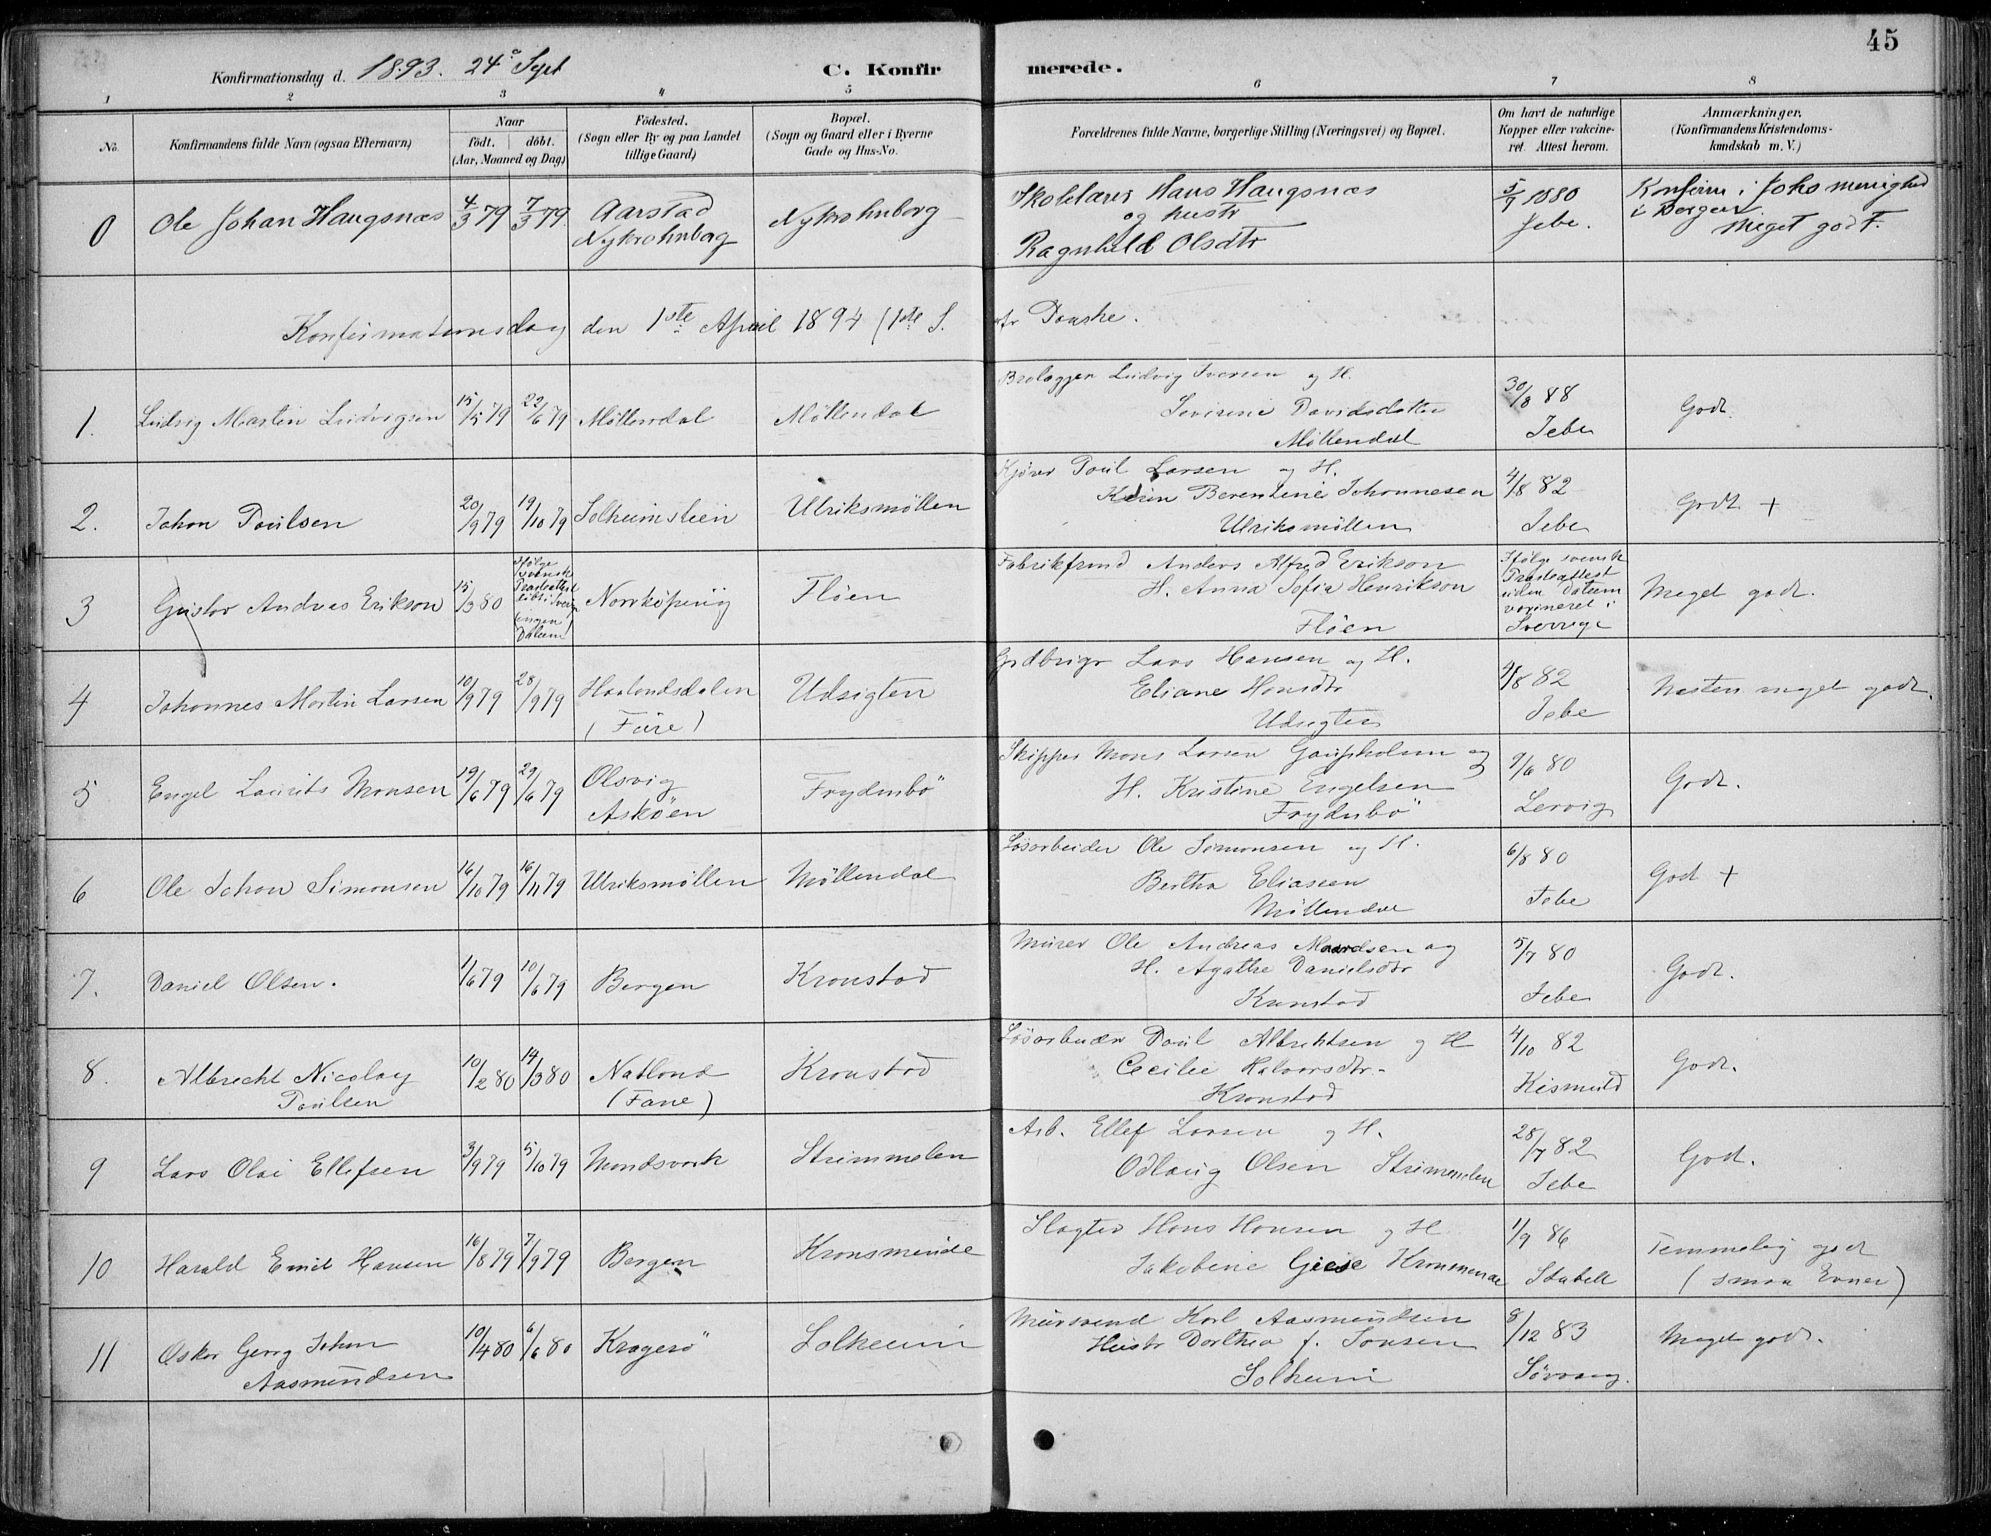 45
Konfirmationsdag d. 1893. 24de Sept
C. Konfirmerede.
1 2 3 4 5 6 7 8
No. Konfirmandens fulde Navn (ogsaa Efternavn) Naar født. døbt. (Aar, Maaned og Dag) Fødested. (Sogn eller By og paa Landet tillige Gaard) Bopæl. (Sogn og Gaard eller i Byerne Gade og Hus-No. Forældrenes fulde Navne, borgerlige Stilling (Næringsvei) og Bopæl. Om havt de naturlige Kopper eller vakcineret. Attest herom. Anmærkninger. (Konfirmandens Kristendomskundskab m. V.)
0 Ole Johan Haugsnæs 4/3 79 7/3 79. Aarstad Nykrohnborg Nykrohnborg Skolelærer Hans Haugsnæs og hustr Ragnhild Olsdtr 5/9 1880 Jebe. Konfirm i Johs menighed i Bergen Meget godt.
Konfirmationsdag den 1ste April 1894 (1ste S. efr Paaske.
1. Ludvig Martin Ludvigsen 15/5 79 22/6 79 Møllendal Møllendal Brolægger Ludvig Iversen og H. Severine Davidsdatter Møllendal 30/8 88 Jebe Godt.
2. Johan Paulsen 20/9 79 19/10 79 Solheimsteen Ulriksmøllen Kjører Paul Larsen og H. Karin Berentine Johannesen Ulriksmøllen 4/8 82 Jebe Godt +
3 Gustav Andreas Erikson 15/3 80 Ifølge svensk Præsteattest døbt i Sverige (ingen Datum Norrköping Fløen Fabrikfrmd Anders Alfred Erikson H. Anna Sofia Henrikson Fløen Ifølge svensk Præsteattest uden Datum vaccineret i Sverrige Meget godt.
4 Johannes Martin Larsen 10/9 79 28/9 79 Haalandsdalen (Fuse) Udsigten Grdbrugr Lars Hansen og H. Eliane Hansdtr Udsigten 9/8 82 Jebe Næsten meget godt.
5 Engel Laurits Monsen 19/6 79 29/6 79 Olsvig Askøen Frydenbö Skipper Mons Larsen Gaupholm og H. Kristine Engelsen Frydenbö 9/6 80 Lervig Godt.
6 Ole Johan Simonsen 16/10 79 16/11 79 Ulriksmøllen Møllendal Løsarbeider Ole Simonsen og H. Bertha Eliassen Møllendal 6/8 80 Jebe Godt +
7. Daniel Olsen. 1/6 79 10/6 79 Bergen Kronstad Murer Ole Andreas Maardsen og H. Agathe Danielsdtr Kronstad 5/7 80 Jebe Godt.
8. Albrecht Nicolay Paulsen 10/2 80 14/3 80 Natland (Fane) Kronstad Løsarbeider Paul Albrehtsen og H Cecilie Halvorsdtr. Kronstad 4/10 82 Kismuld Godt.
9 Lars Olai Ellefsen 3/9 79 5/10 79 Mundsvork Strimmelen Arb. Ellef Larsen og H. Odlaug Olsen Strimmelen 28/7 82 Jebe Godt.
10 Harald Emil Hansen 16/8 79 7/9 79 Bergen Kronsminde Slagter Hans Hansen og H Jakobine Giese Kronsminde 1/9 86 Stabell Temmelig godt (smaa Evner)
11 Oskar Georg Johan Aasmundsen 10/4 80 6/6 80 Kragerö Solheim Mursvend Karl Aasmundsen Hustr Dorthea f. Jonsen Solheim 8/12 83 Meget godt.